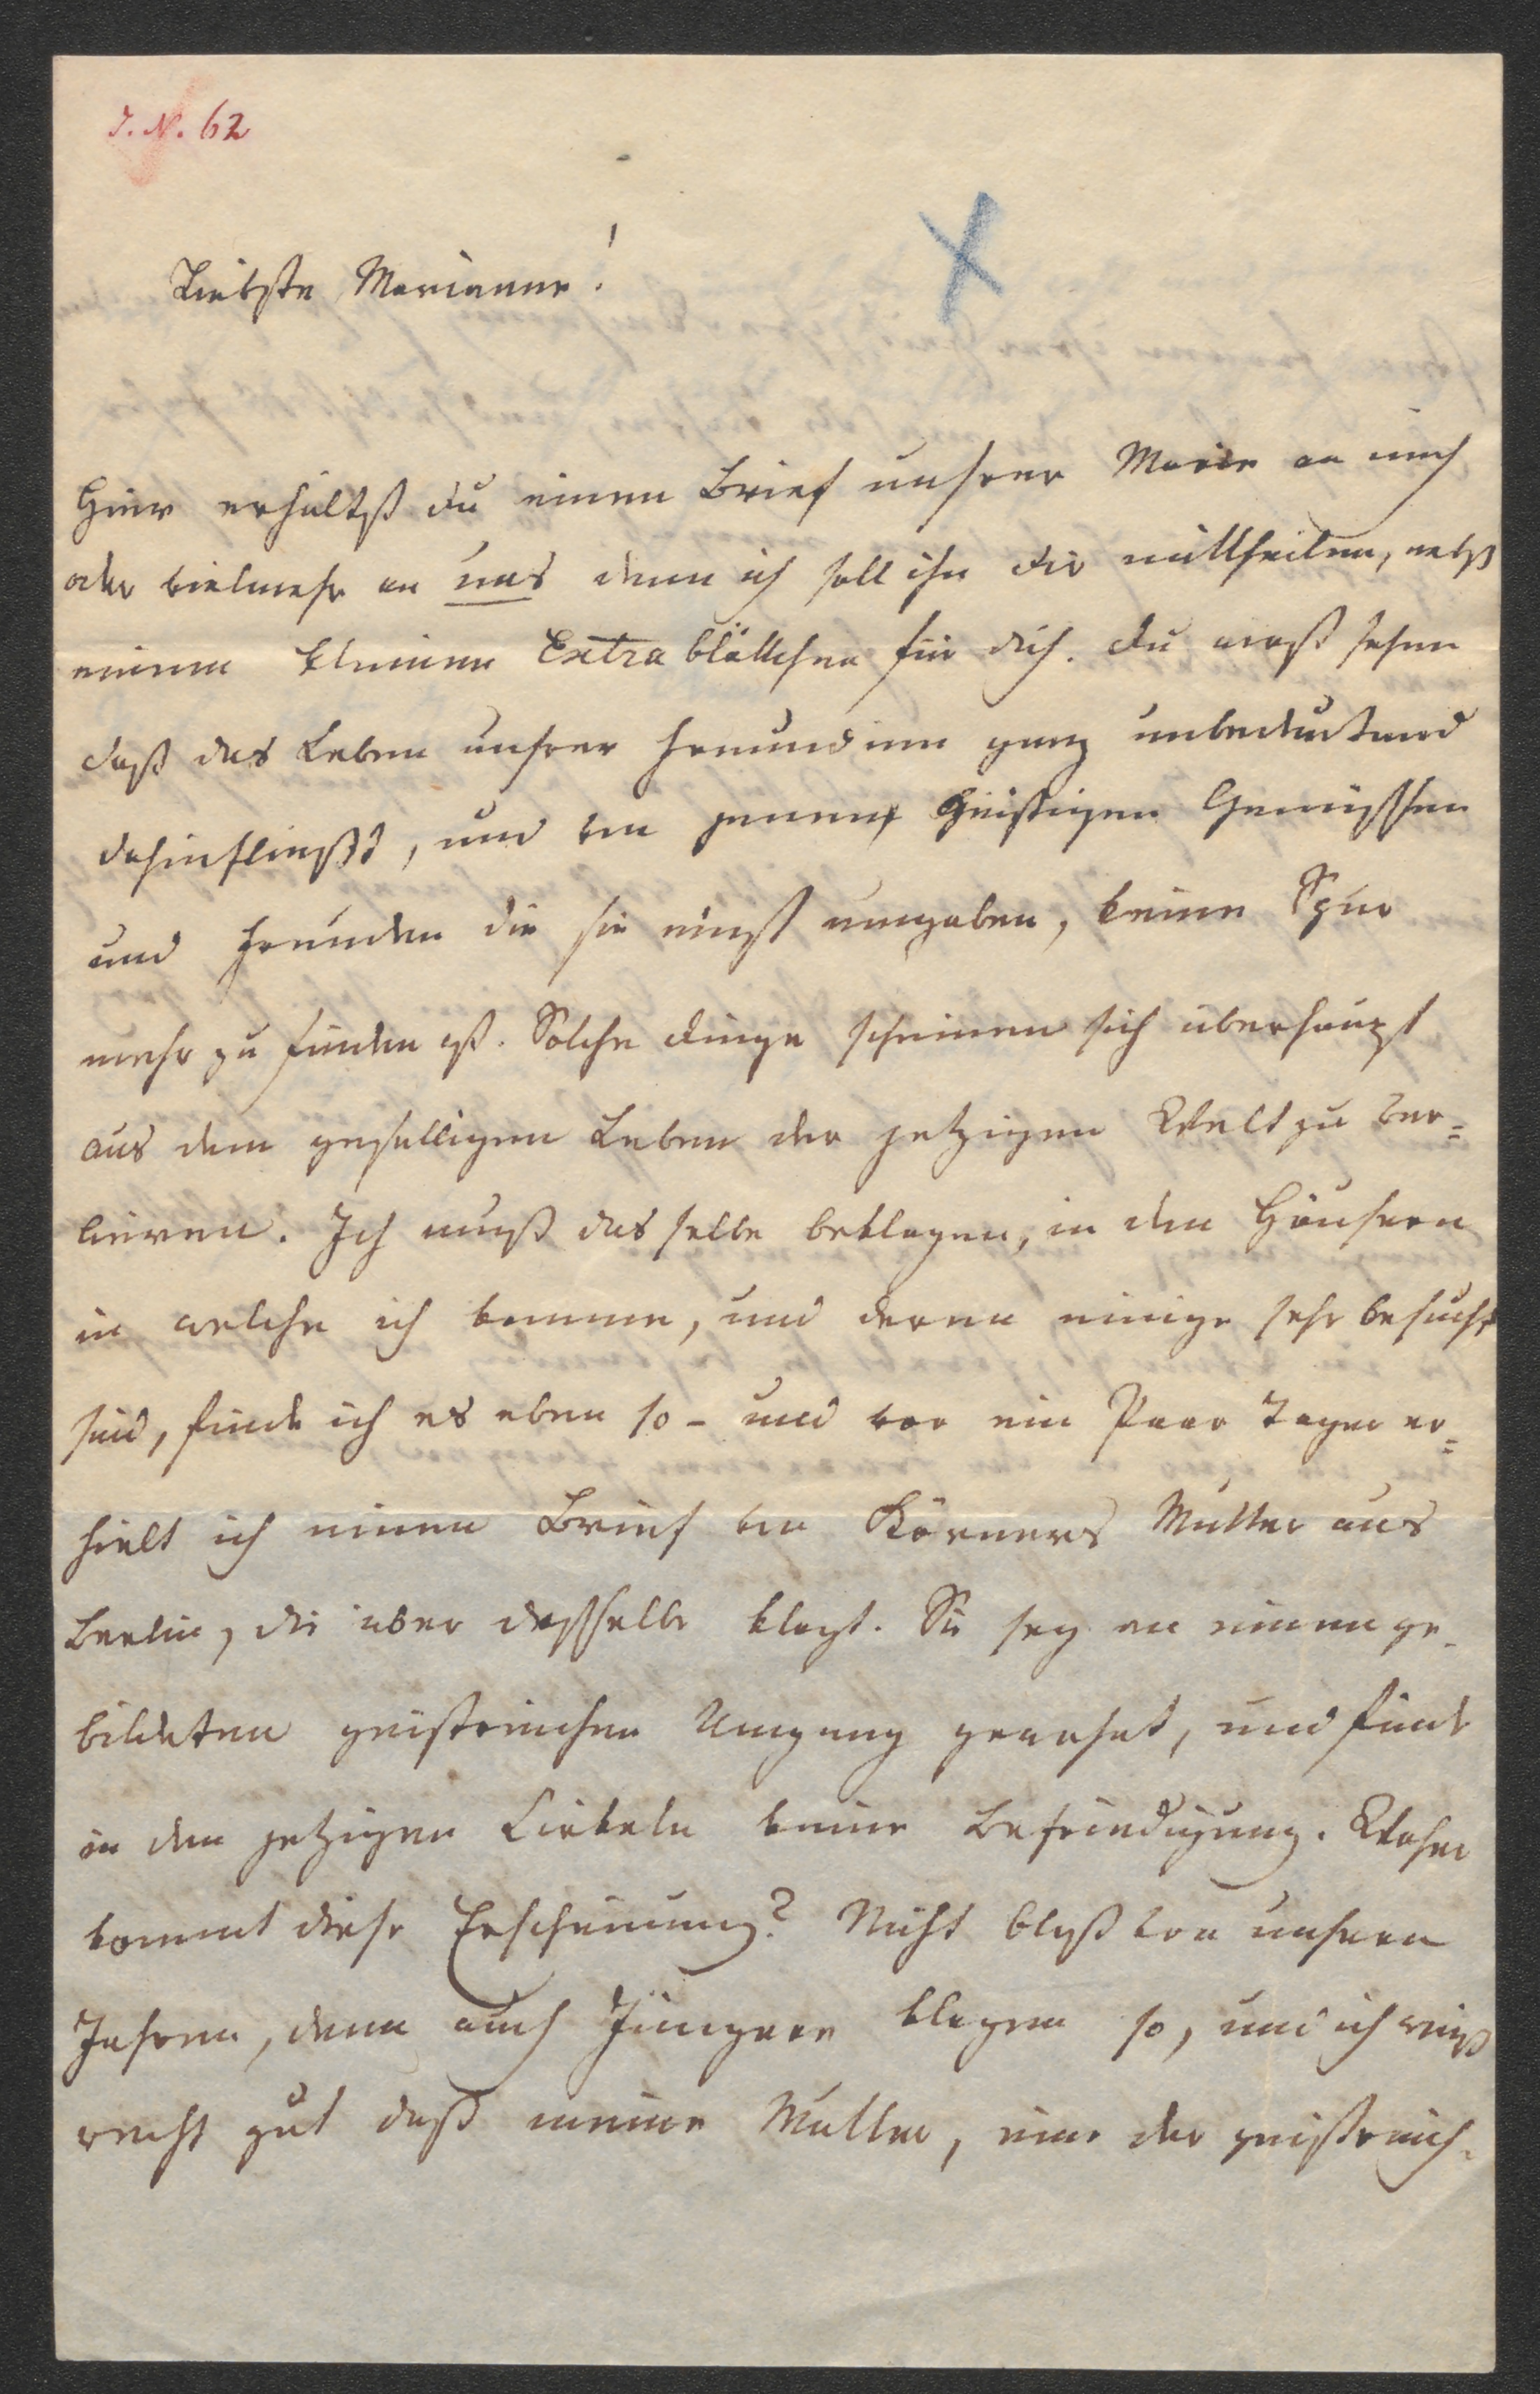 J. N. 62
Liebste Marianne!
Hier erhältst du einen Brief unsrer Marie an mich
oder vielmehr an uns denn ich soll ihn dir mittheilen, nebst
einem kleinen Extrablättchen für dich. du wirst sehen
daß das Leben unsrer Freundinn ganz unbedeutend
dahinfliesst, und von jenen geistigen Genüssen
und Freuden die sie einst umgaben, keine Spur
mehr zu finden ist. Solche dinge scheinen sich überhaupt
aus dem geselligen Leben der jetzigen Welt zu ver=
lieren. Ich muß dasselbe beklagen, in den Häusern
in welche ich komme, und deren einige sehr besucht
sind, finde ich es eben so - und vor ein Paar Tagen er=
hielt ich einen Brief von Körners Mutter aus
Berlin, die über dasselbe klagt. Sie sey an einen ge-
bildeten geistreichen Umgang gewohnt, und finde
in den jetzigen Cirkeln keine Befriedigung. Woher
kommt diese Erscheinung? Nicht bloß von unsern
Jahren, denn auch Jüngere klagen so, und ich weiß
recht gut daß meine Mutter, eine der geistreich-